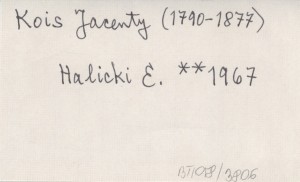 Kois Jacenty (1790-1877)
Halicki E. **1967
BT/OSP/3806